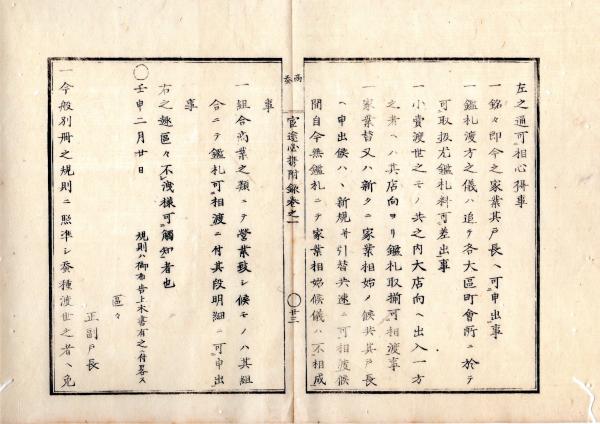 左之通可相心得事
一銘々即今之家業其戸長ヘ可申出事
一鑑札渡方之儀ハ追テ各大区町會所ニ於テ
可取扱尤鑑札料可差出事
一小賣渡世之モノ共之内大店向ヘ出入一方
之者ヘハ其店向ヨリ鑑札取揃可相渡事
一家業替又ハ新タニ家業相始ノ候共其戸長
ヘ申出候ハヽ新規并引替共速ニ可相渡候
間自今無鑑札ニテ家業相始候儀ハ不相成
官途必携附錄巻之一
廿三
事
一組合商業之類ニテ營業致シ候モノハ其組
合ニテ鑑札可相渡ニ付其段明細ニ可申出
事
右之趣區々不洩様可觸知者也
壬申二月廿日
規則ハ御布告上木書有之ニ付畧ス
區々
正副戸長
一今般別冊之規則ニ照準シ蚕種渡世之者ヘ免